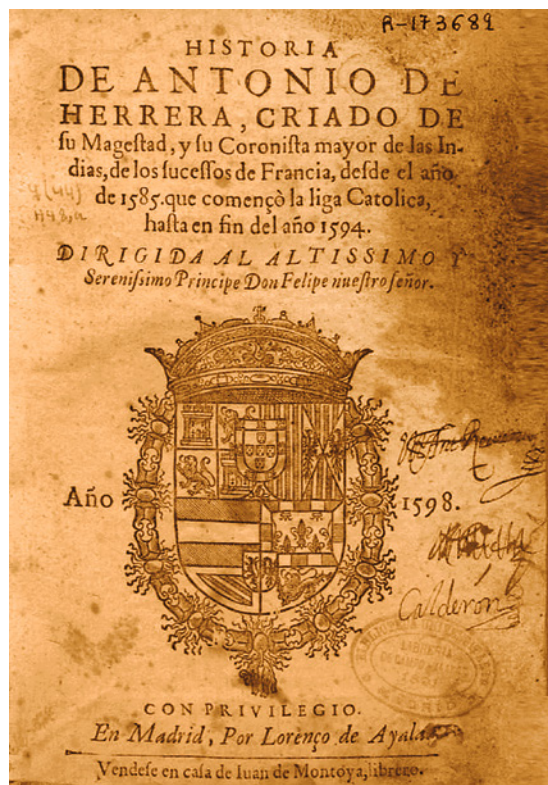 R-173689
HISTORIA
DE ANTONIO DE
HERRERA, CRIADO DE
ſu Mageſtad, y ſu Coroniſta mayor de las In-
dias, de los ſuceſſos de Francia, deſde el año
de 1585. que començò la liga Catolica,
haſta en fin del año 1594.
DIRIGIDA AL ALTISSIMO Y
Sereniſsimo Principe Don Felipe nueſtro ſeñor.
Año 1598.
Calderón
LIBRERIA
MADRID
CON PRIVILEGIO.
En Madrid, Por Lorenço de Ayala.
Vendeſe en caſa de Iuan de Montoya, librero.